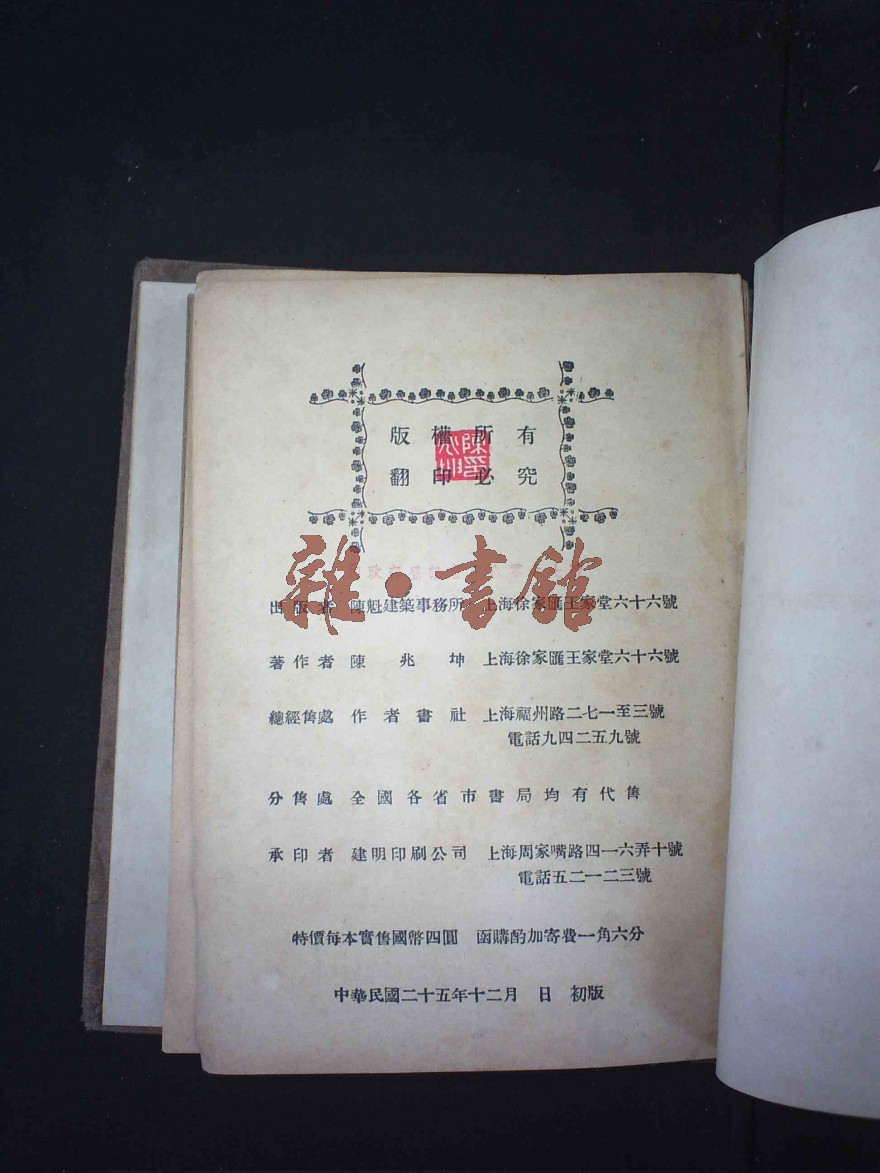 版權所有
翻印必究
雜·書館
出版者 陳魁建築事務所 上海徐家匯王家堂六十六號
著作者 陳兆坤 上海徐家匯王家堂六十六號
總經售處 作者書社 上海福州路二七一至三號
電話九四二五九號
分售處 全國各省市書局均有代售
承印者 建明印刷公司 上海周家嘴路四一六弄十號
電話五二一二三號
特價每本實售國幣四圓 函購酌加寄費一角六分
中華民國二十五年十二月 日 初版